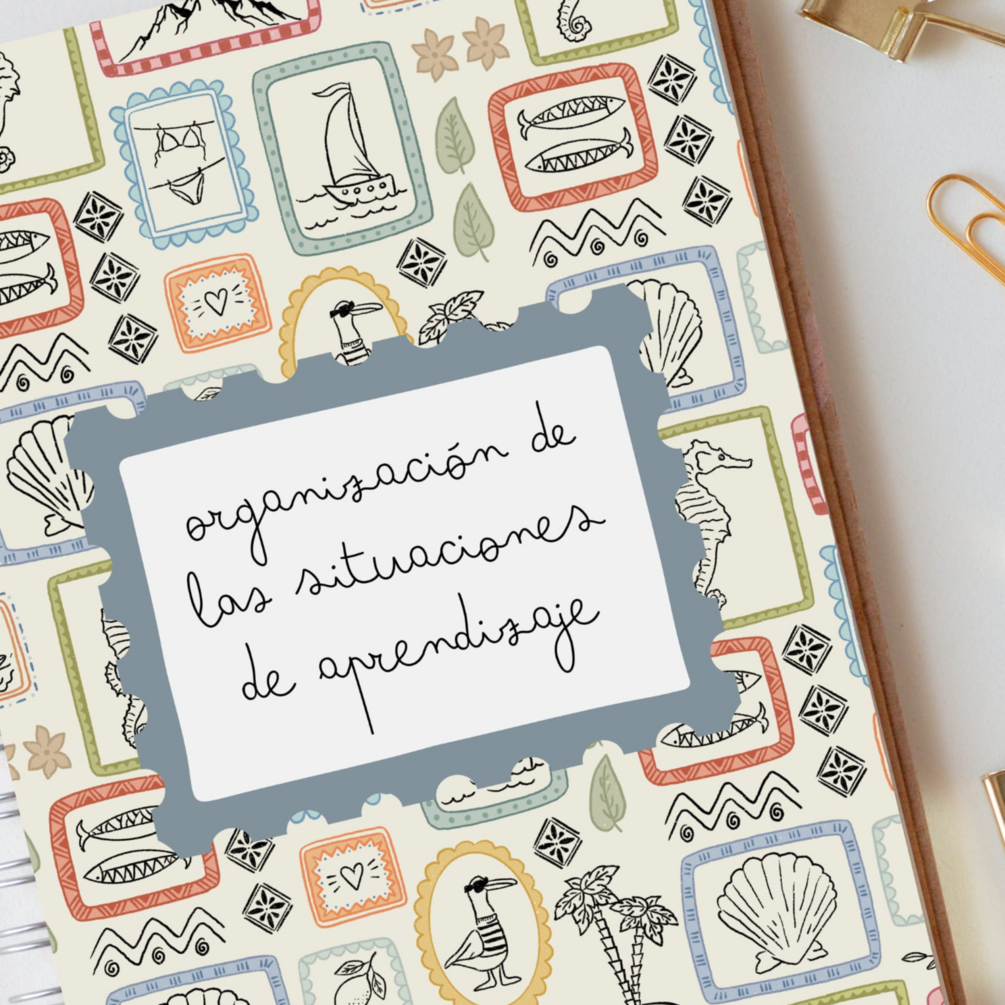 organización de
las situaciones
de aprendizaje